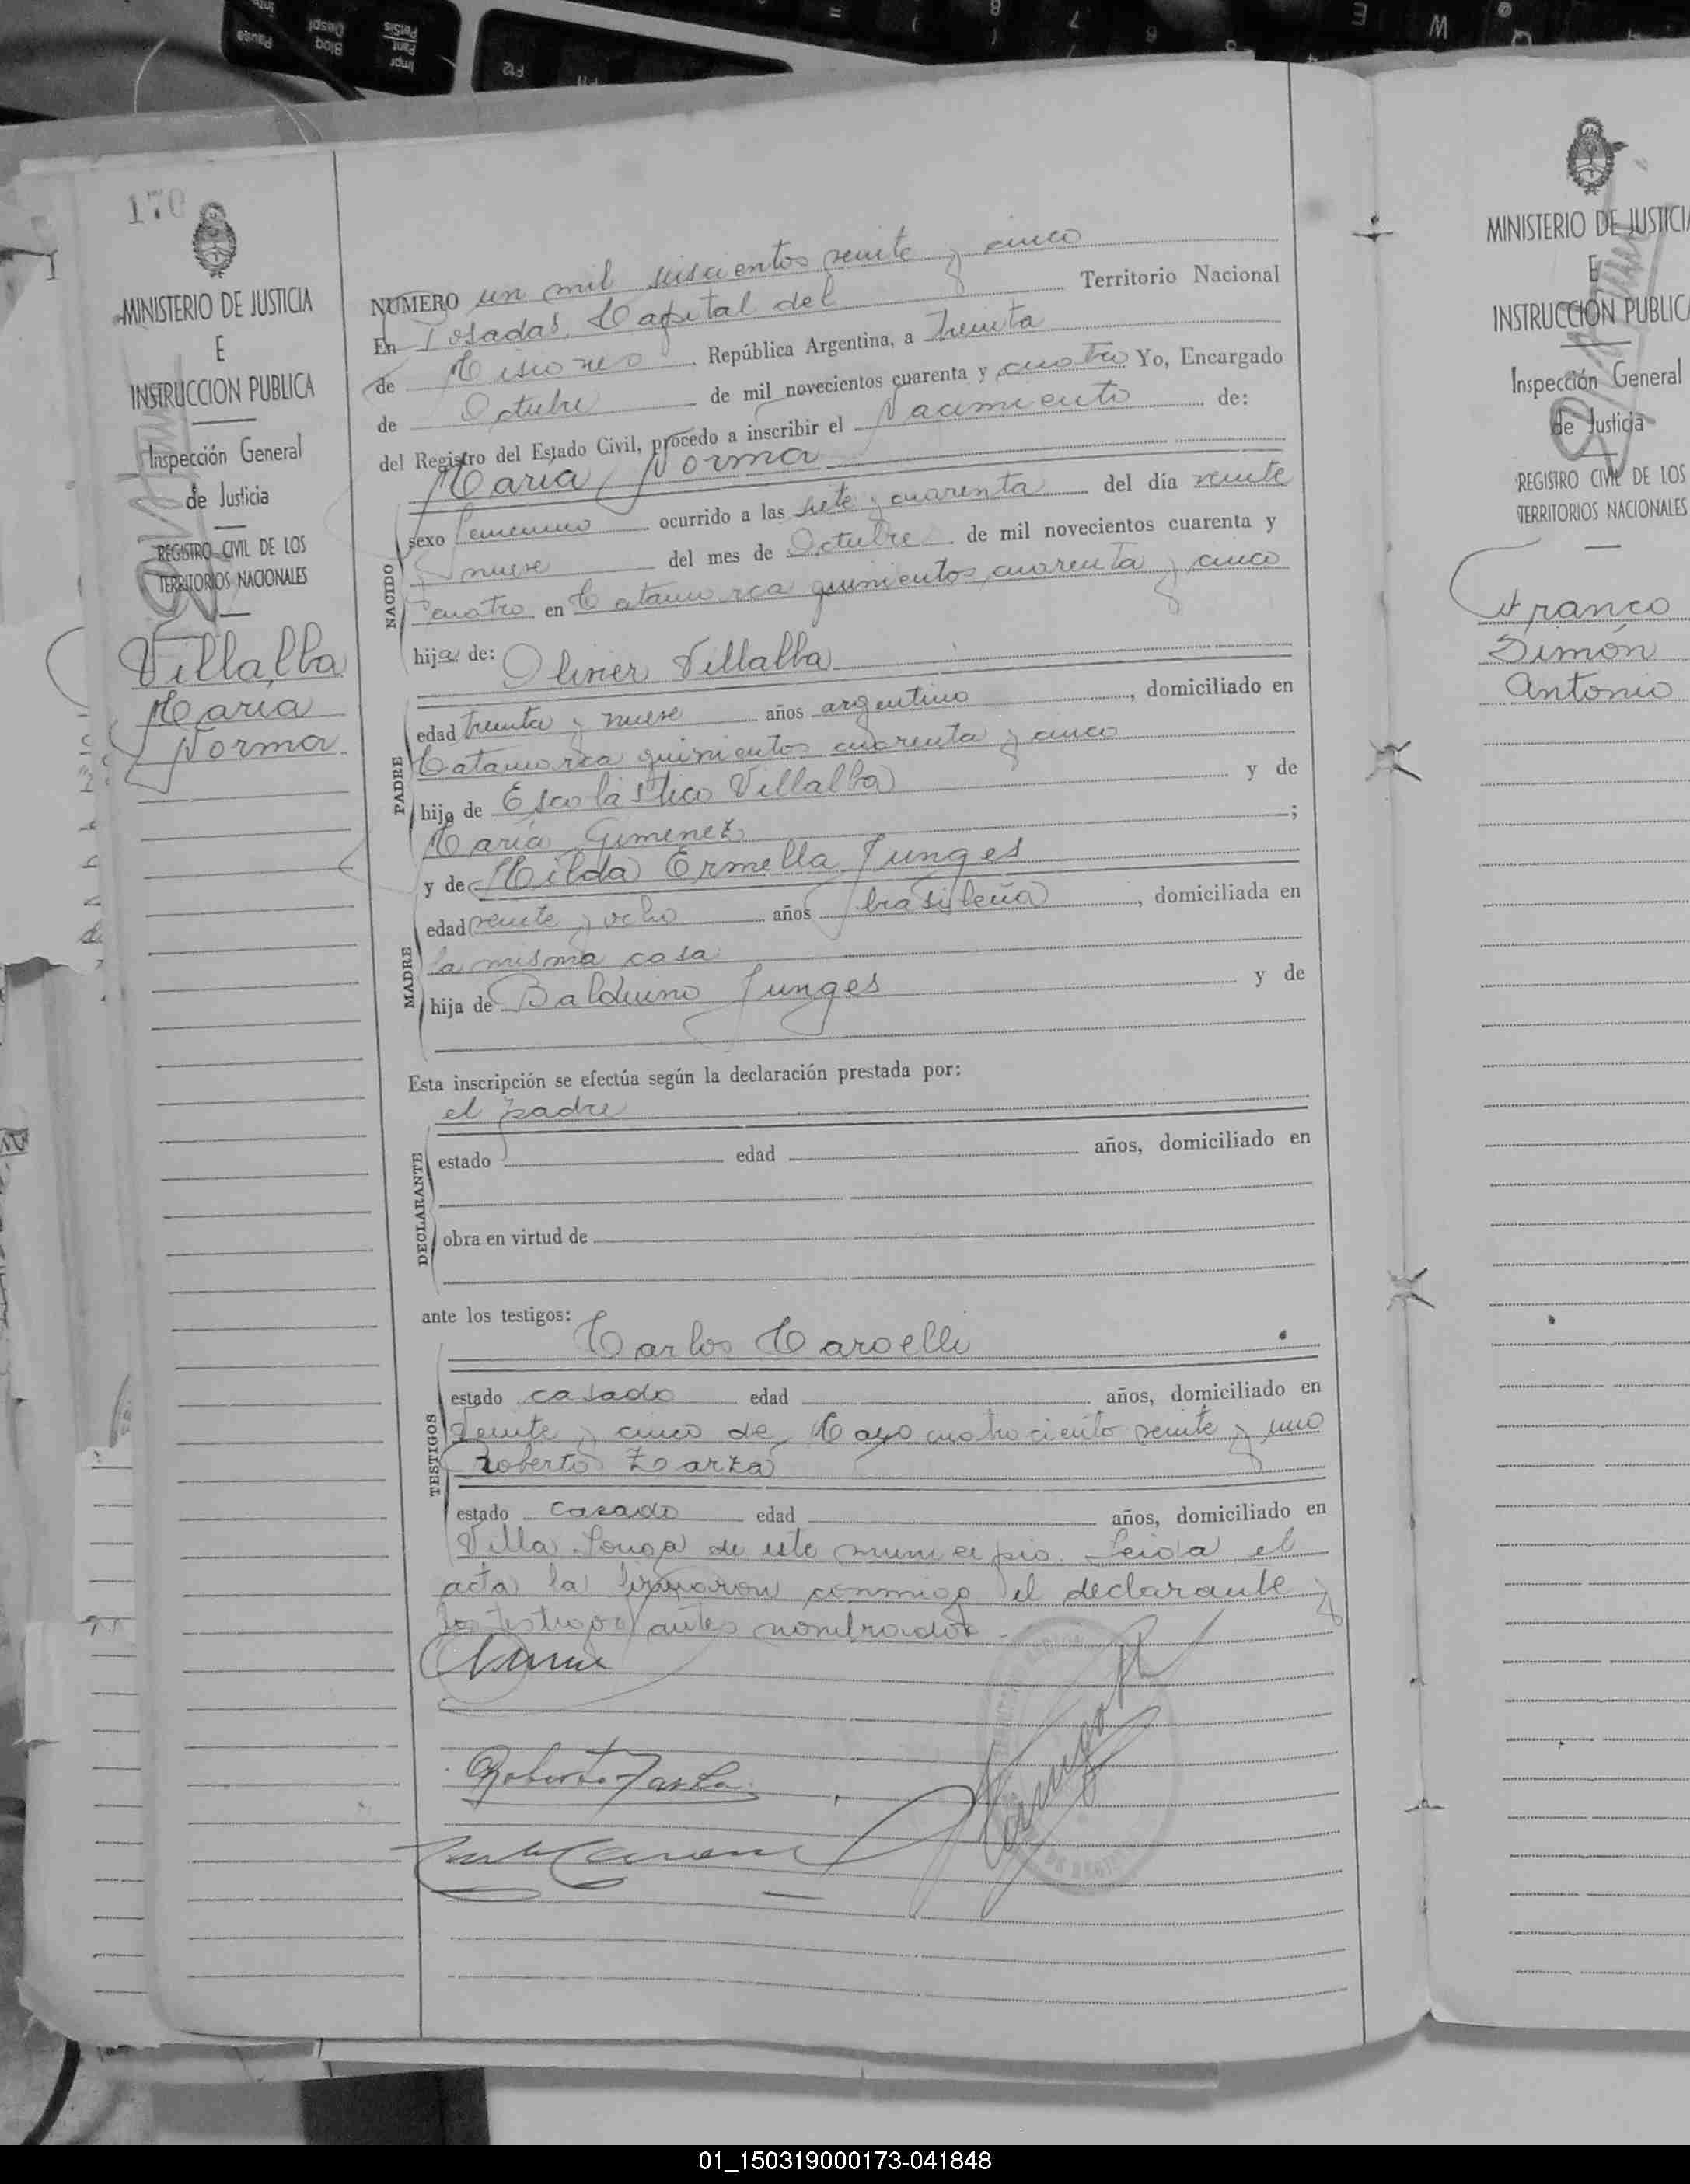 170
MINISTERIO DE JUSTICIA
E
INSTRUCCION PUBLICA
Inspección General
de Justicia
REGISTRO CIVIL DE LOS
TERRITORIOS NACIONALES
Villalba
Maria
Norma
NUMERO un mil seiscientos veinte y cinco
En Posadas, Capital del Territorio Nacional
de Misiones República Argentina, a Treinta
de Octubre de mil novecientos cuarenta y cuatro Yo, Encargado
del Registro del Estado Civil, procedo a inscribir el Nacimiento de:
Maria Norma
NACIDO
sexo femenino ocurrido a las siete y cuarenta del día veinte
y nueve del mes de Octubre de mil novecientos cuarenta y
cuatro en Catamarca quinientos cuarenta y cinco
hija de: Oliver Villalba
PADRE
edad treinta y nueve años argentino, domiciliado en
Catamarca quinientos cuarenta y cinco
hijo de Escolástico Villalba y de
Maria Gimenez;
y de Hilda Ermella Junges
MADRE
edad veinte y ocho años brasileña, domiciliada en
la misma casa
hija de Balduino Junges y de
Esta inscripción se efectúa según la declaración prestada por:
el padre
DECLARANTE
estado edad años, domiciliado en
obra en virtud de
ante los testigos:
Carlos
TESTIGOS
estado casado edad años, domiciliado en
Veinte y cinco de Mayo cuatrociento veinte y uno
Roberto Zarza
estado casado edad años, domiciliado en
Villa Longa de este municipio. Leida el
acta la firmaron conmigo el declarante y
los testigos antes nombrados.
Roberto Zarza
MINISTERIO DE JUSTICIA
E
INSTRUCCION PUBLICA
Inspección General
de Justicia
REGISTRO CIVIL DE LOS
TERRITORIOS NACIONALES
Franco
Simón
Antonio
01_150319000173-041848